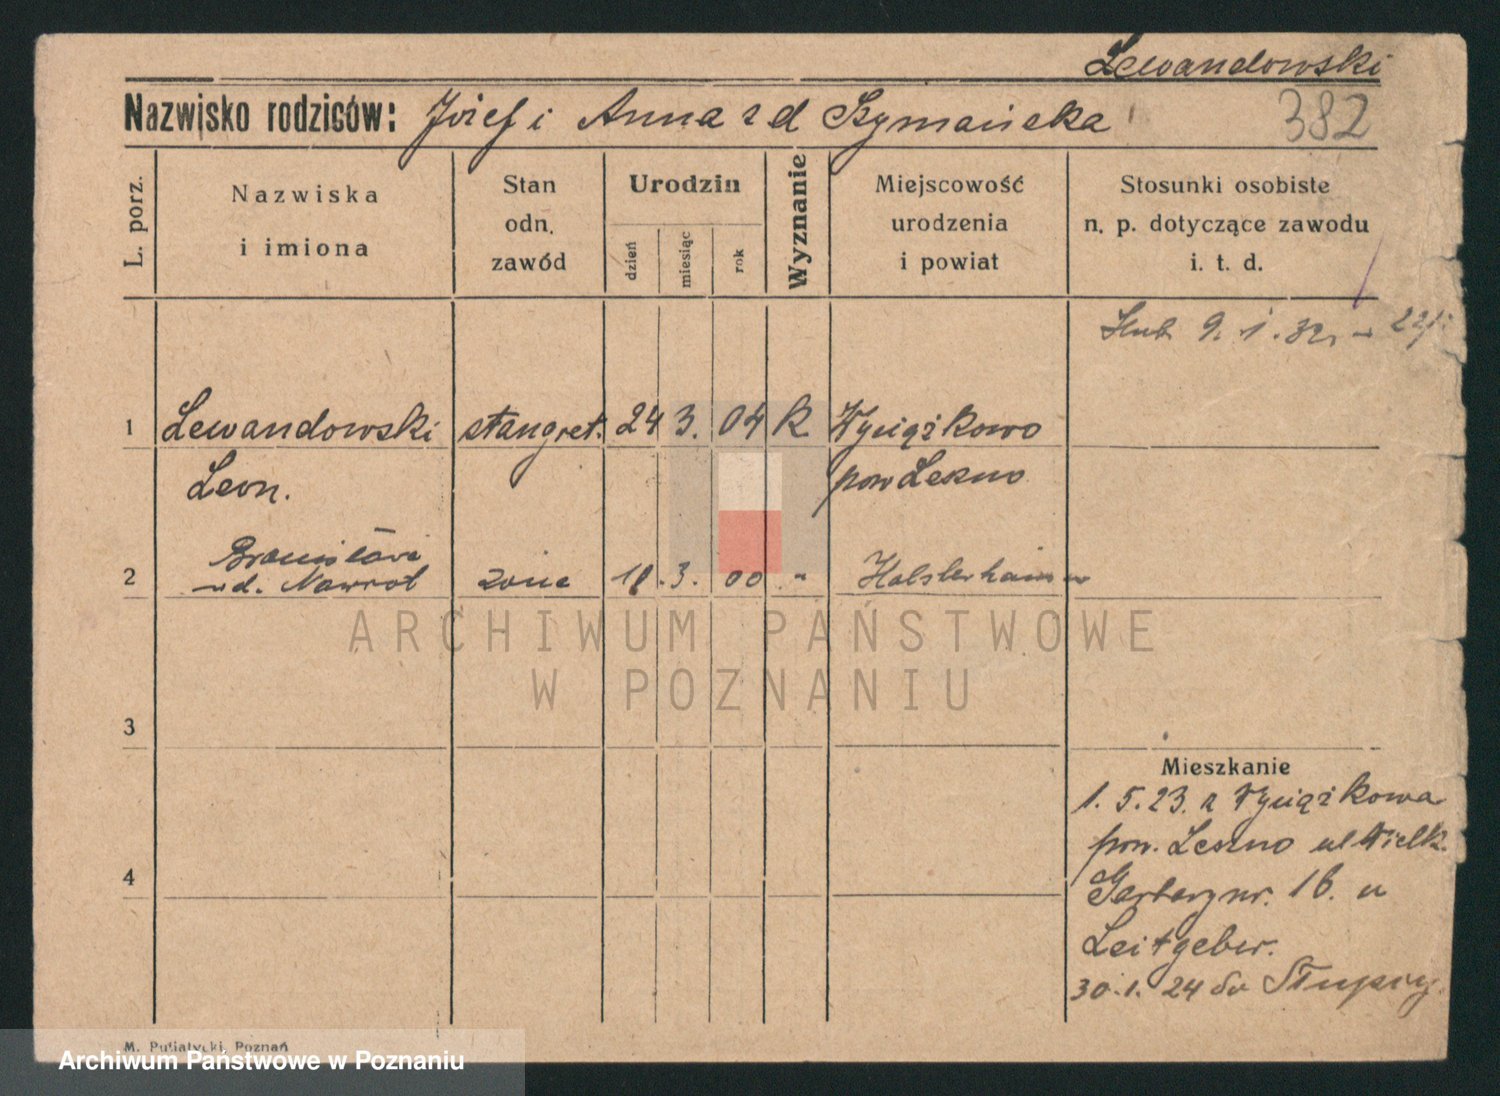 Lewandowski
Nazwisko rodziców: Józef i Anna z d Szymańska
382
L. porz.
Nazwiska i imiona
Stan odn. zawód
Urodzin
dzień
miesiąc
rok
Wyznanie
Miejscowość urodzenia i powiat
Stosunki osobiste n. p. dotyczące zawodu i. t. d.
9. 1. 32
1 Lewandowski stangret. 24 3. 04 k. Wyciążkowo
Leon. pow Leszno
Bronisława
2 zd. Nawrot żona 18. 3. 00 "
3
Mieszkanie
1. 5. 23. z Wyciążkowa
pow. Leszno ul Wielk.
4
Garbary nr. 16. u
Leitgeber.
30. 1. 24 do
M. Putiatycki, Poznań
Archiwum Państwowe w Poznaniu
ARCHIWUM PAŃSTWOWE
W POZNANIU